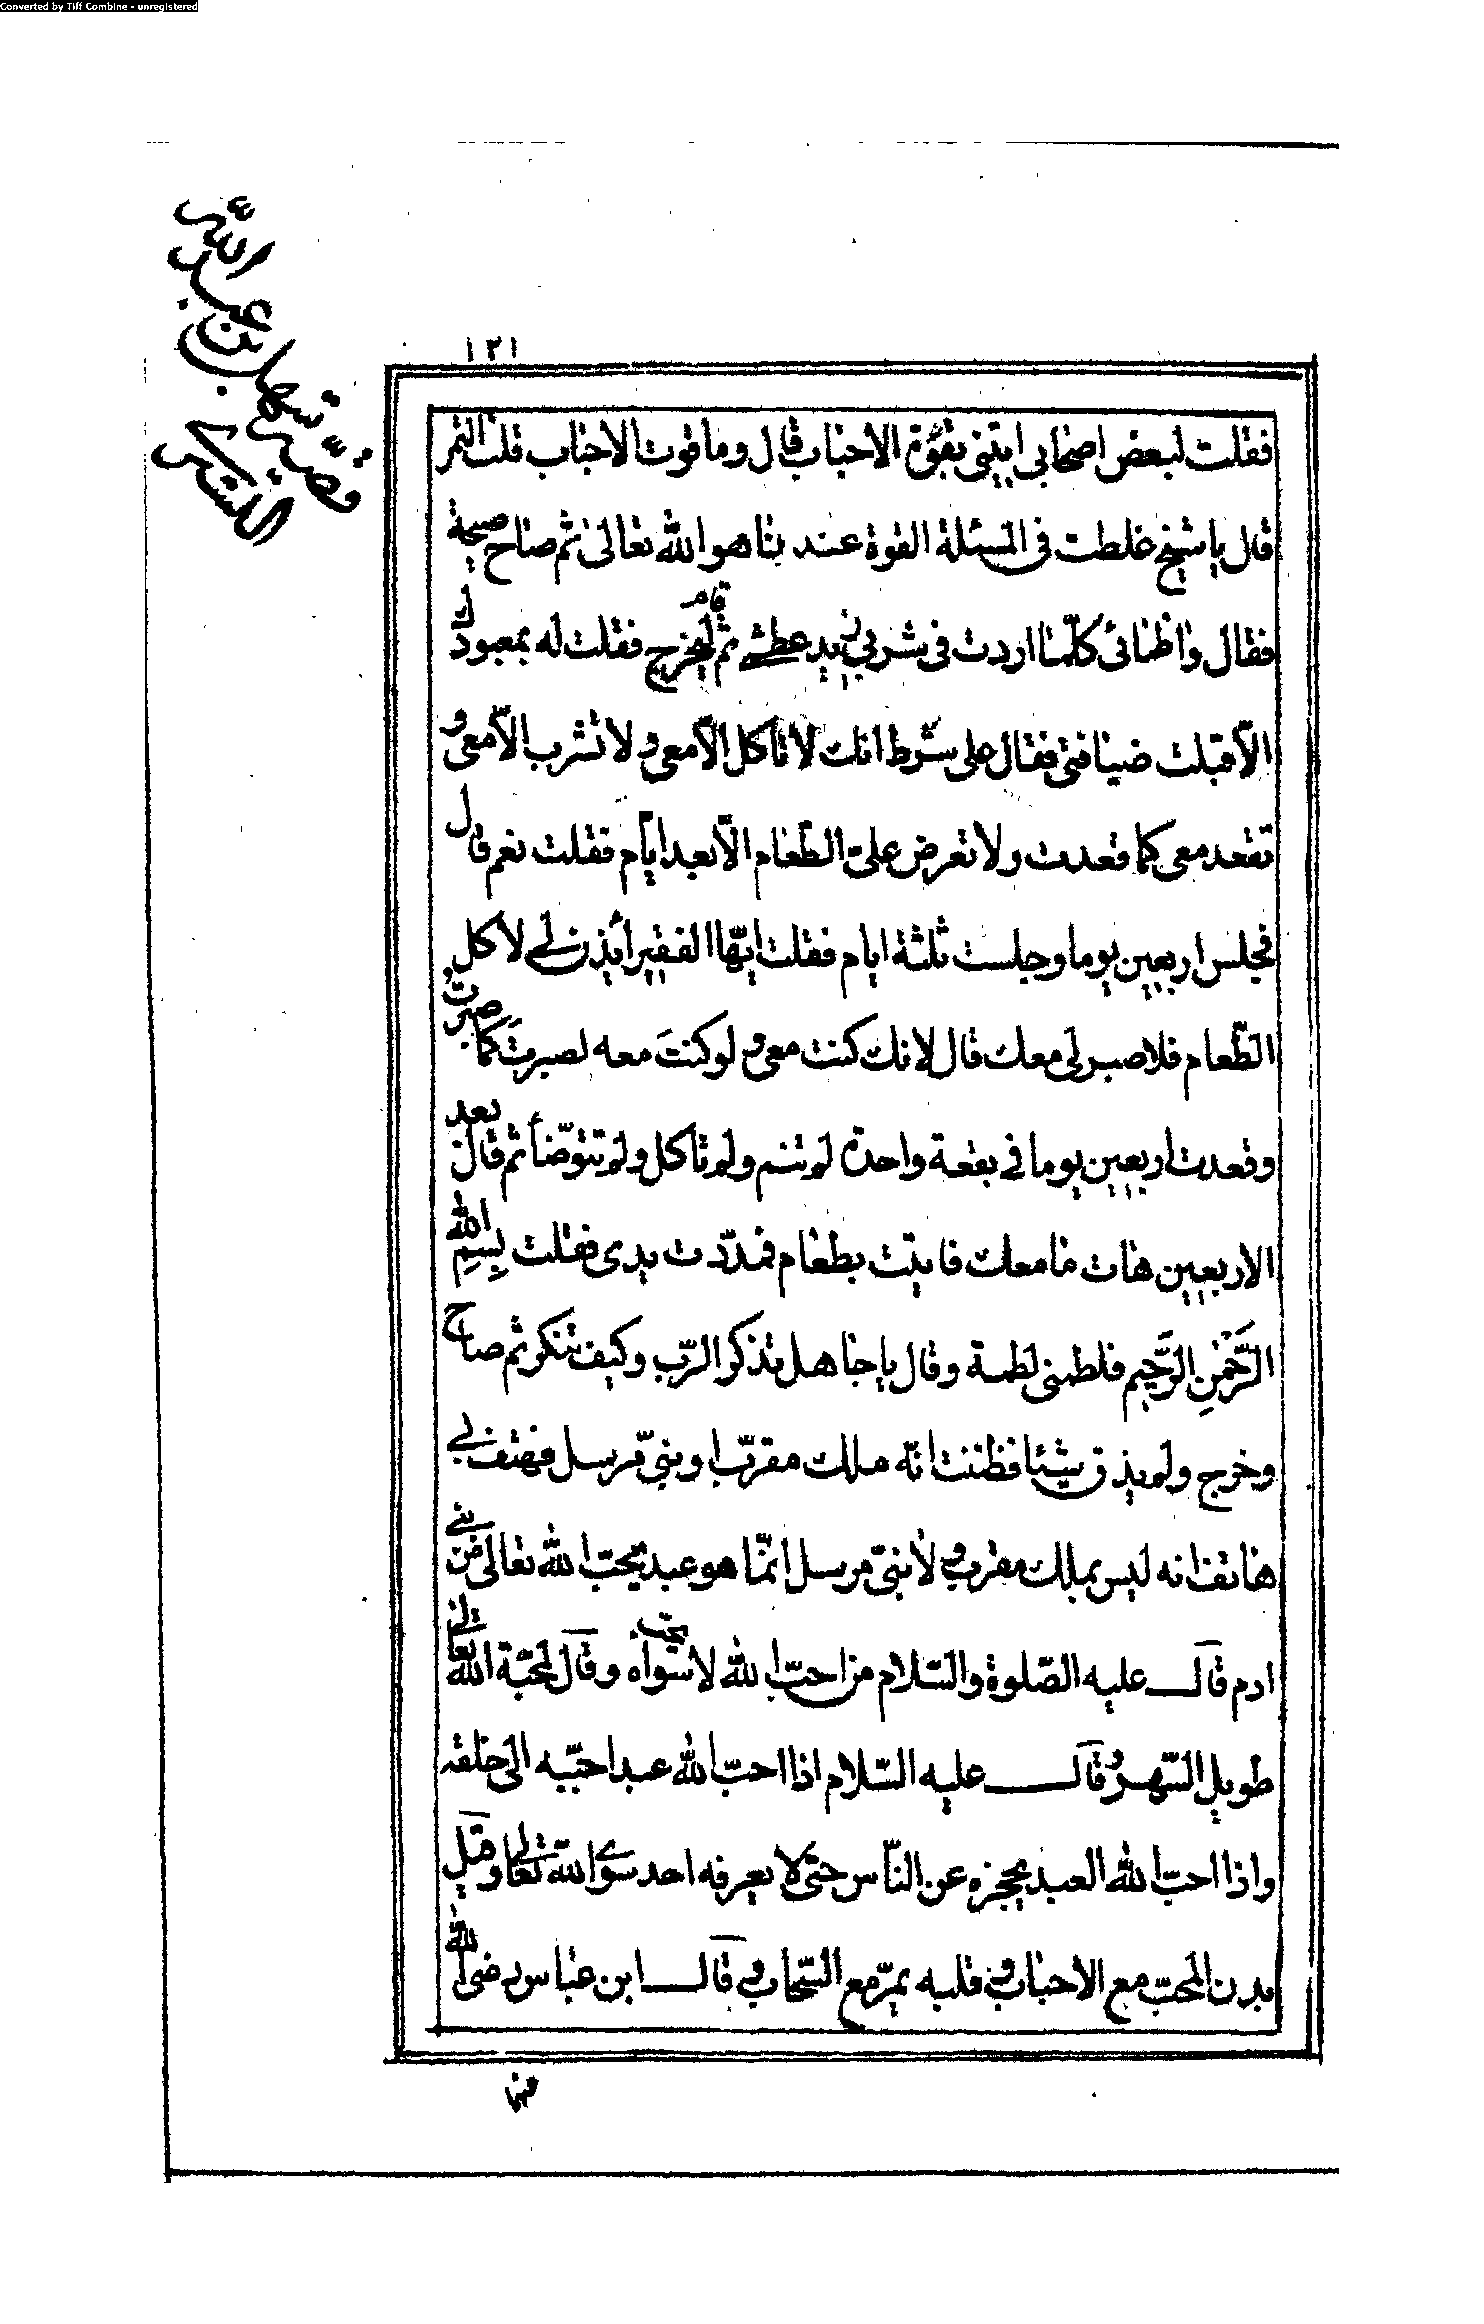 Converted by Tiff Combine - unregistered
قصّة سهل بن عبد الله
التستري
١٢١
فقلت لبعض اصحابى ايتنى بقوّة الاحباب قال وما قوت الاحباب قلت التمر
قال يا شيخ غلطت فى المسئلة القوة عندنا هو الله تعالى ثم صاح صيحة
فقال واظمائى كلّما اردت فى شربى يزيد عطشى ثم قام ليخرج فقلت له بمعبودك
الّا قبلت ضيافتى فقال على شرط انك لا تأكل الّا معى ولا تشرب الّا معى و
تقعد معى كما قعدت ولا تعرض علىّ الطّعام الّا بعد ايّام فقلت نعم قال
فجلس اربعين يوما وجلست ثلثة ايام فقلت ايّها الفقير أيذن لى لاكل
الطّعام فلا صبر لى معك قال لانك كنت معى ولو كنت معه لصبرت كما صبرت
وقعدت اربعين يوما فى بقعة واحدة لم تنم ولم تأكل ولم تتوضّأ ثم قال بعد
الاربعين هات ما معك فاتيت بطعام فمددت يدى فقلت بسم الله
الرّحمن الرّحيم فلطمنى لطمة وقال يا جاهل تذكر الرّب وكيف تنكر ثم صاح
وخرج ولم يذق شيئا فظننت انّه ملك مقرّب او نبىّ مرسل فهتف بى
هاتف انه ليس بملك مقرب ولا نبىّ مرسل انّما هو عبد يحبّ الله تعالى من بنى
ادم قال عليه الصّلوة والسّلام من احبّ الله لا يحب سواه وقال لمحبّة الله تعالى
طويل السّهر وقال عليه السّلام اذا احبّ الله عبدا حبّبه الى خلقه
واذا احبّ الله العبد يحجزه عن النّاس حتى لا يعرفه احد سوى الله تعالى وقيل
بدن المحبّ مع الاحباب وقلبه يمرّ مع السّحاب وقال ابن عباس رضى الله